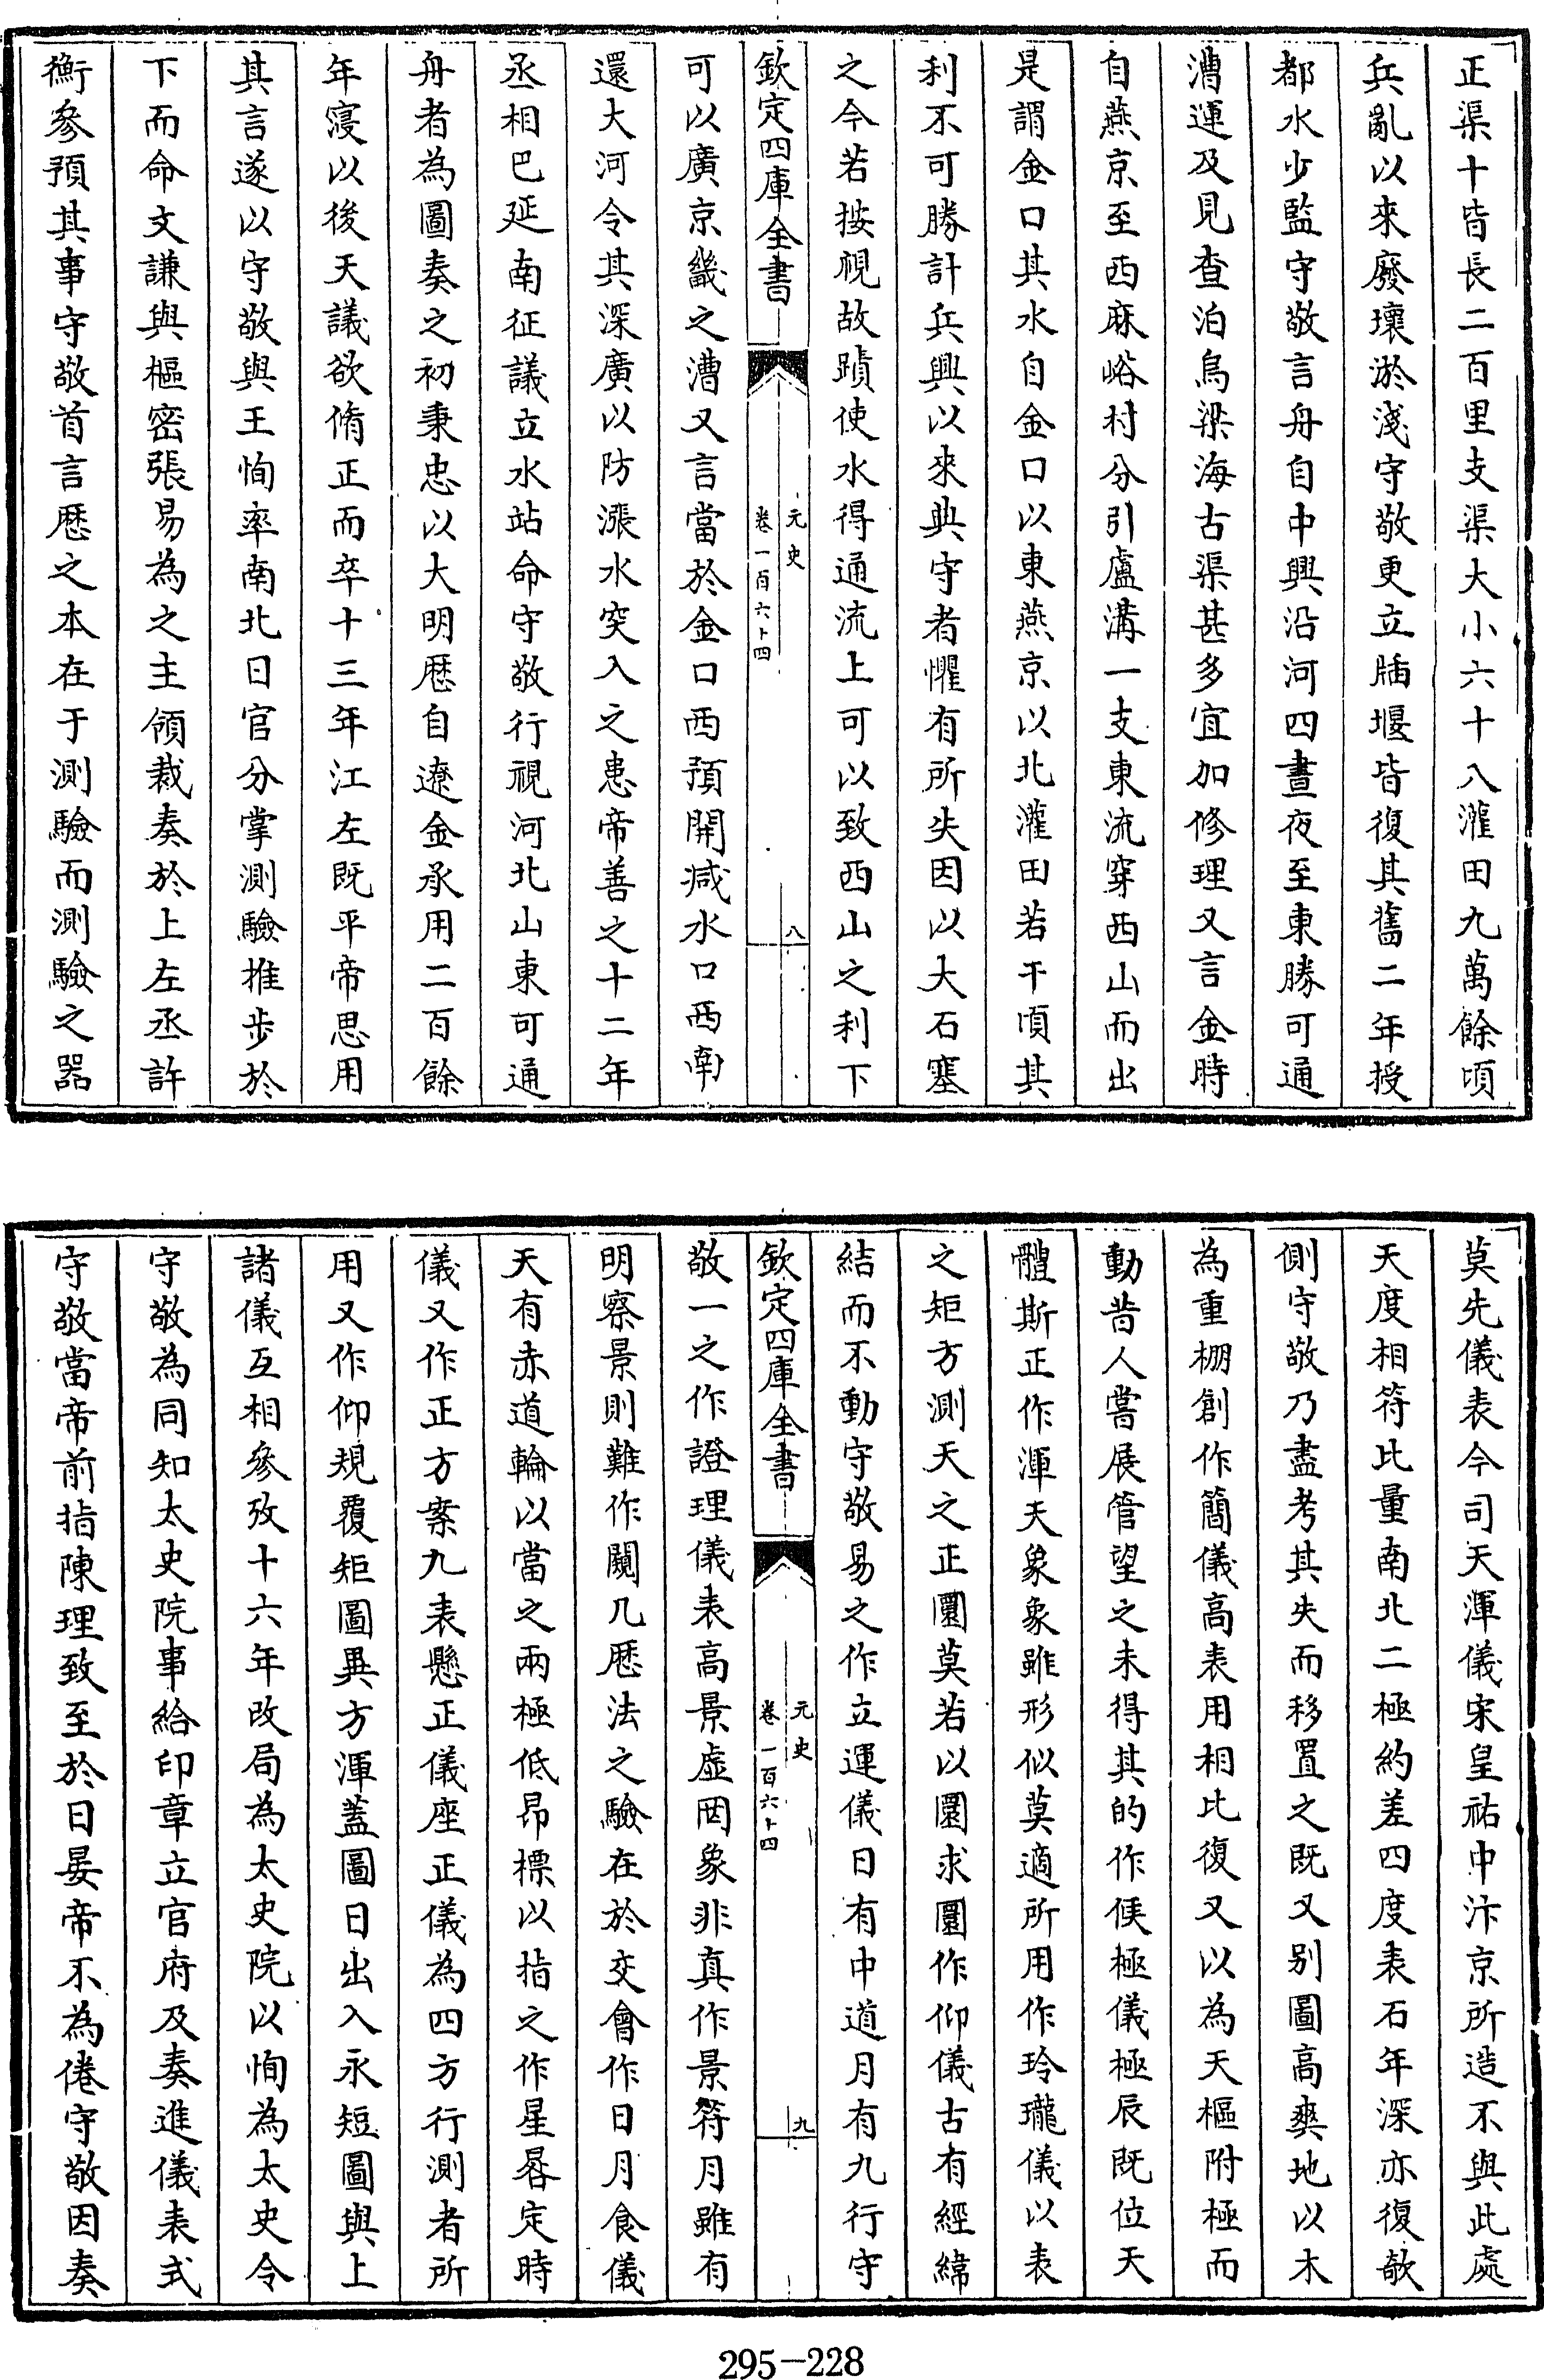 正渠十皆長二百里支渠大小六十八灌田九萬餘頃
兵亂以來廢壞淤淺守敬更立牐堰皆復其舊二年授
都水少監守敬言舟自中興沿河四晝夜至東勝可通
漕運及見查泊烏梁海古渠甚多宜加修理又言金時
自燕京至西麻峪村分引盧溝一支東流穿西山而出
是謂金口其水自金口以東燕京以北灌田若干頃其
利不可勝計兵興以來典守者懼有所失因以大石塞
之今若按視故蹟使水得通流上可以致西山之利下
欽定四庫全書
元史
卷一百六十四
八
可以廣京畿之漕又言當於金口西預開減水口西南
還大河令其深廣以防漲水突入之患帝善之十二年
丞相巴延南征議立水站命守敬行視河北山東可通
舟者為圖奏之初秉忠以大明厯自遼金承用二百餘
年寖以後天議欲脩正而卒十三年江左既平帝思用
其言遂以守敬與王恂率南北日官分掌測驗推步於
下而命文謙與樞密張易為之主領裁奏於上左丞許
衡參預其事守敬首言厯之本在于測驗而測驗之器
莫先儀表今司天渾儀宋皇祐中汴京所造不與此處
天度相符比量南北二極約差四度表石年深亦復欹
側守敬乃盡考其失而移置之既又别圖高爽地以木
為重棚創作簡儀高表用相比復又以為天樞附極而
動昔人嘗展管望之未得其的作候極儀極辰既位天
體斯正作渾天象象雖形似莫適所用作玲瓏儀以表
之矩方測天之正圜莫若以圜求圜作仰儀古有經緯
結而不動守敬易之作立運儀日有中道月有九行守
欽定四庫全書
元史
卷一百六十四
九
敬一之作證理儀表高景虛罔象非真作景符月雖有
明察景則難作闚几厯法之驗在於交會作日月食儀
天有赤道輪以當之兩極低昂標以指之作星晷定時
儀又作正方案九表懸正儀座正儀為四方行測者所
用又作仰規覆矩圖異方渾蓋圖日出入永短圖與上
諸儀互相參攷十六年改局為太史院以恂為太史令
守敬為同知太史院事給印章立官府及奏進儀表式
守敬當帝前指陳理致至於日晏帝不為倦守敬因奏
295-228